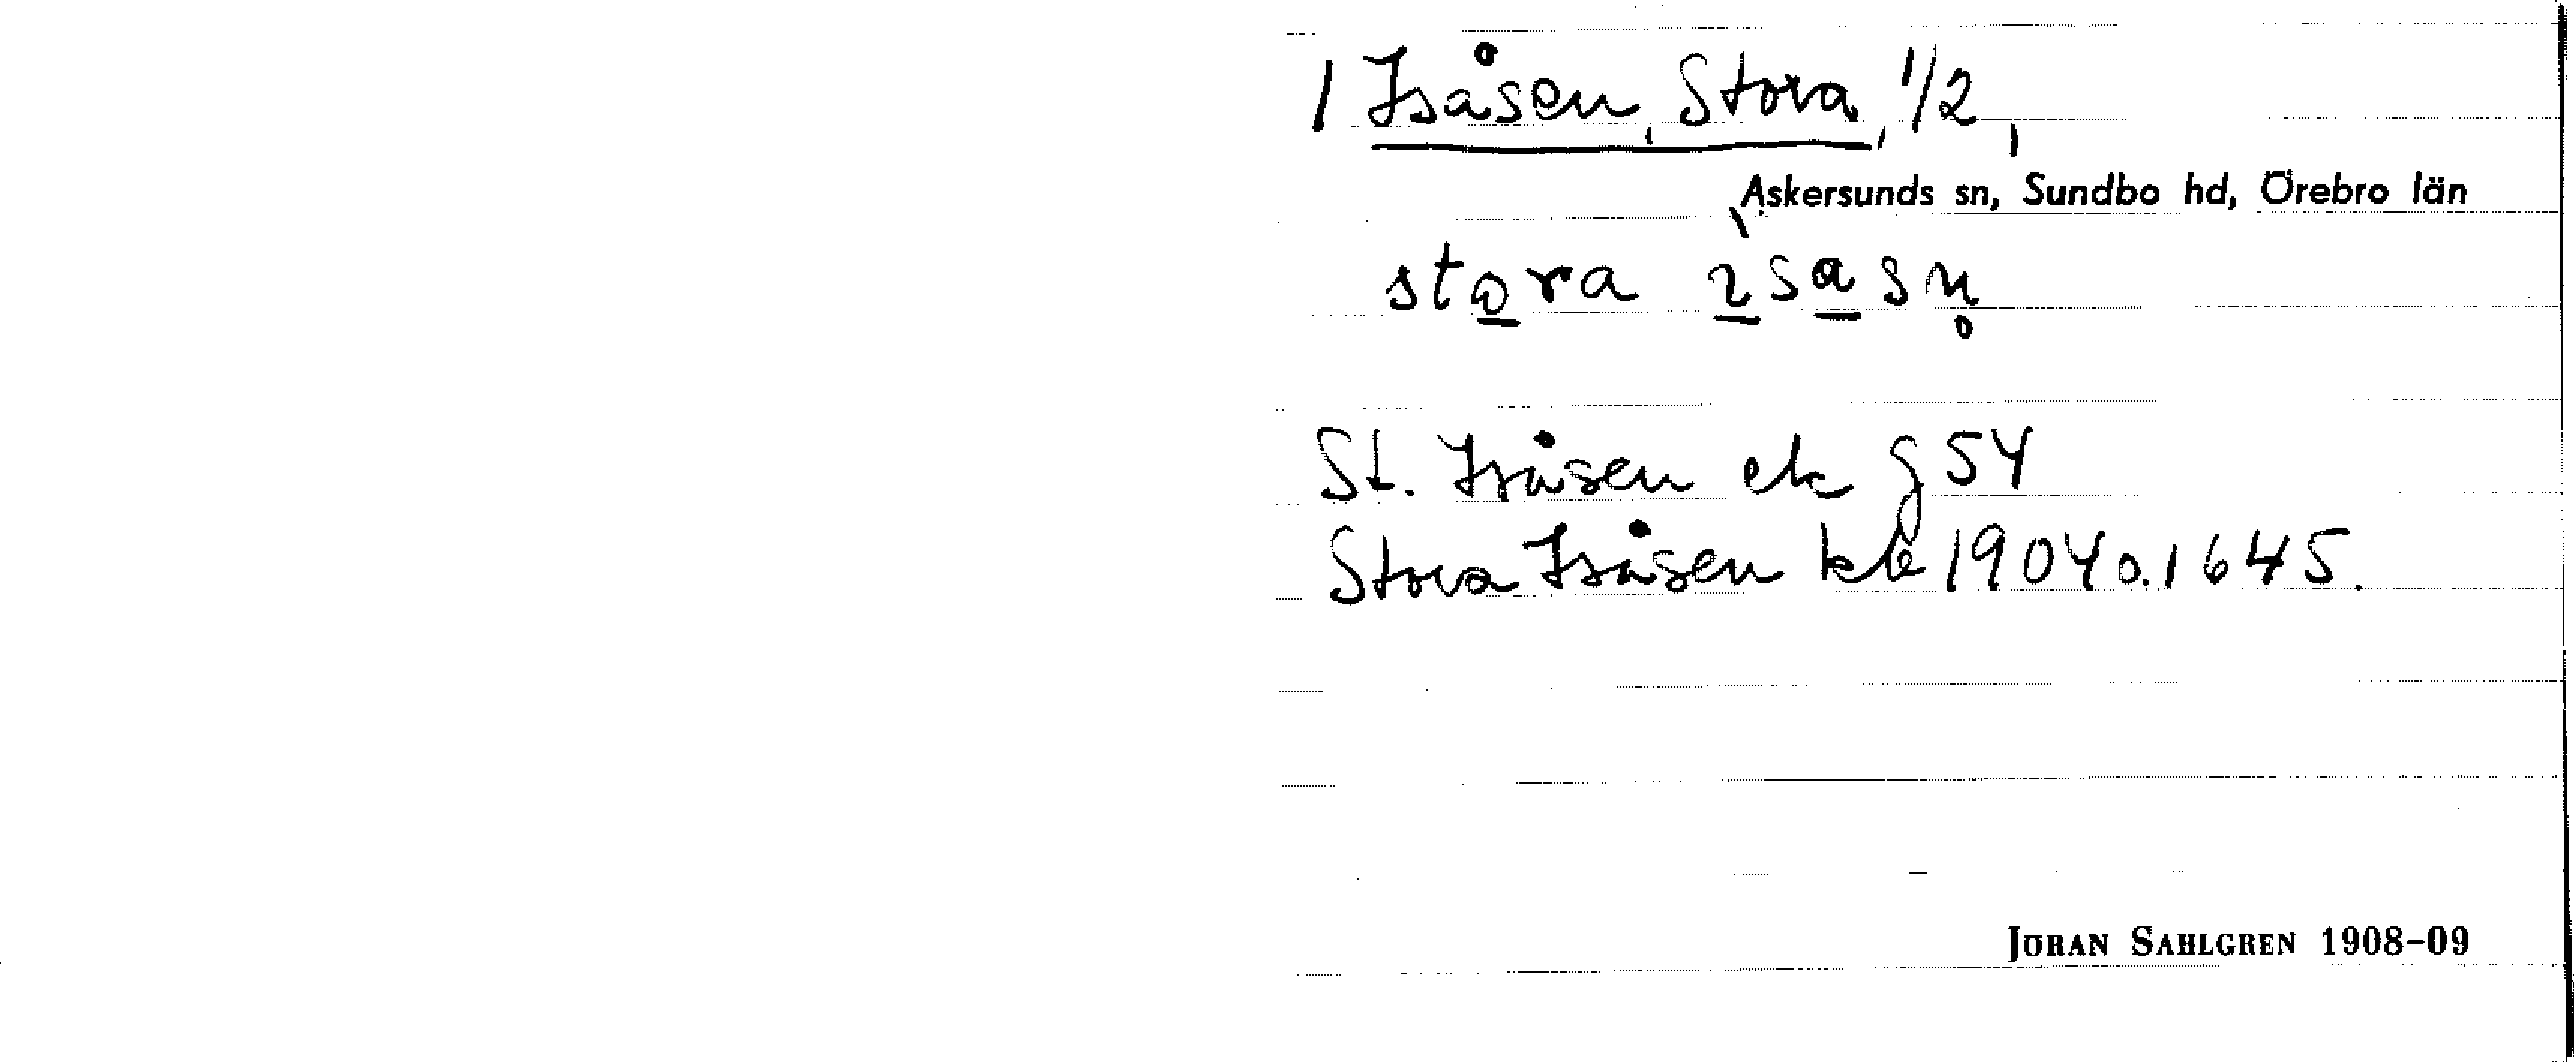 1 Isåsen, Stora, 1/2,
Askersunds sn, Sundbo hd, Örebro län
stora ısasn̥
St. Isåsen ek g 54
Stora Isåsen kb 1904 o. 1645.
JÖRAN SAHLGREN 1908–09